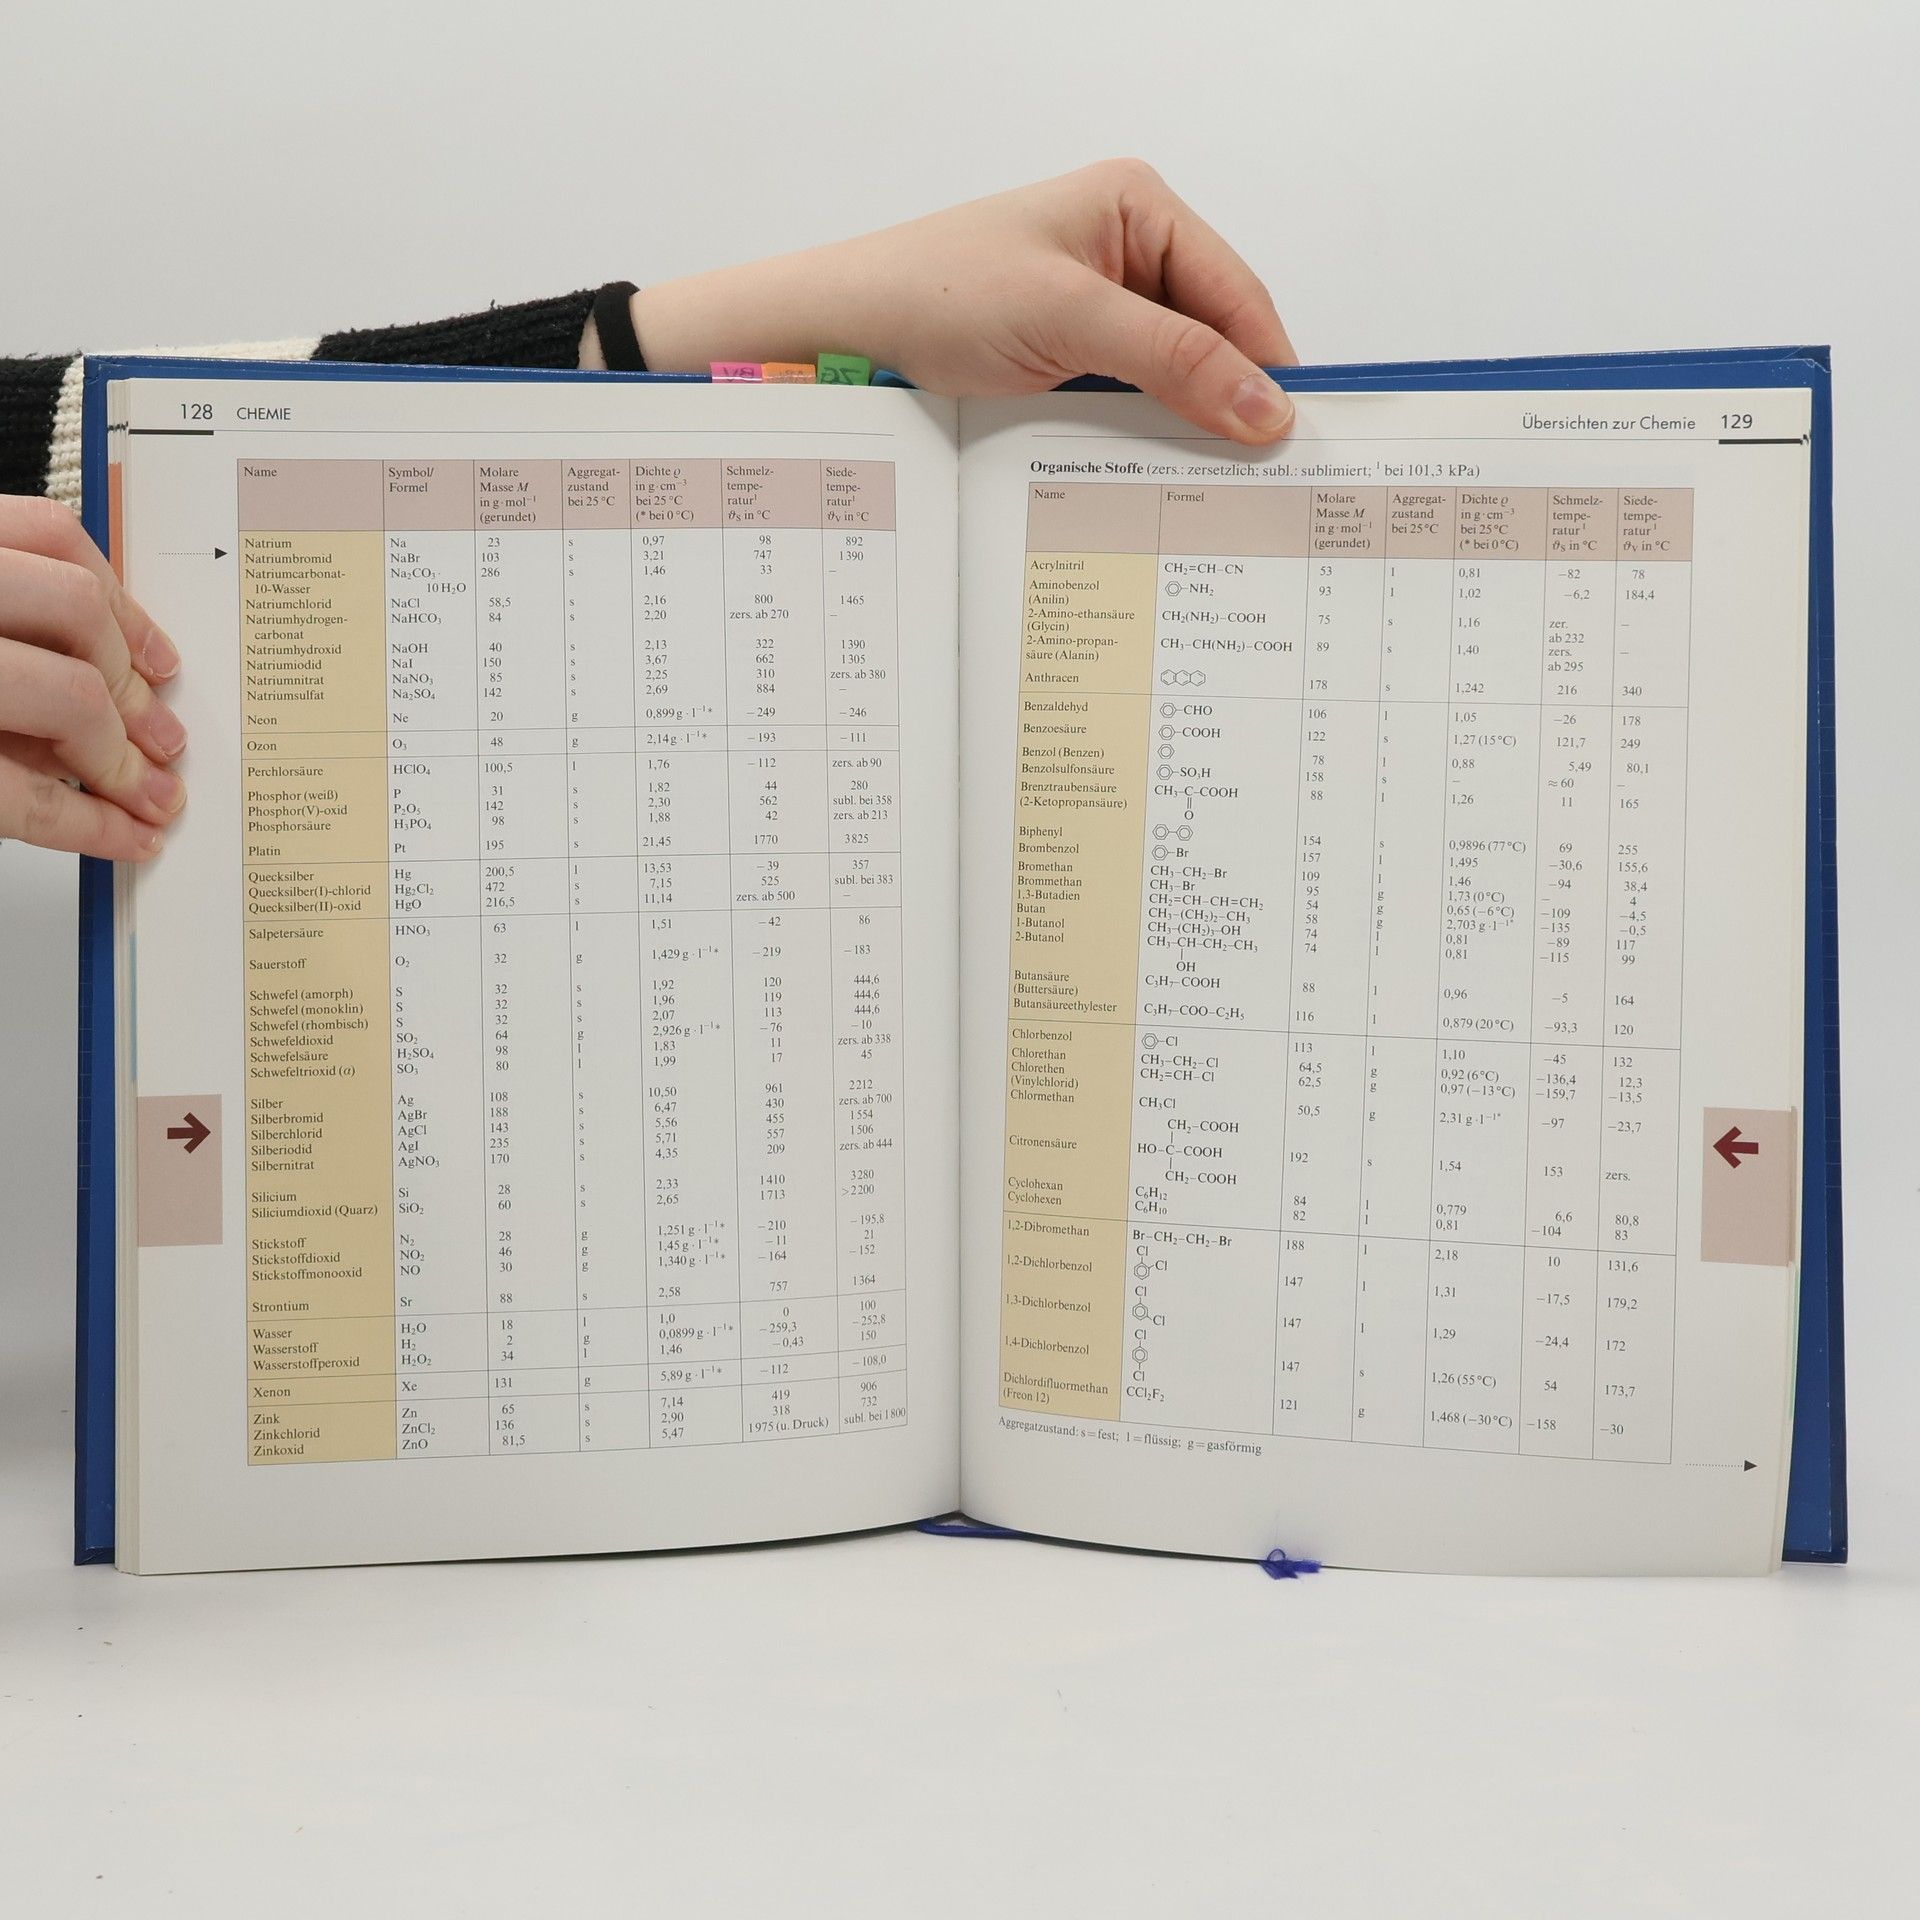 128 CHEMIE
Name Symbol/ Formel Molare Masse M in g·mol⁻¹ (gerundet) Aggregat- zustand bei 25 °C Dichte ϱ in g·cm⁻³ bei 25 °C (* bei 0 °C) Schmelz- tempe- ratur¹ ϑS in °C Siede- tempe- ratur¹ ϑV in °C
Natrium Na 23 s 0,97 98 892
Natriumbromid NaBr 103 s 3,21 747 1390
Natriumcarbonat- Na₂CO₃· 286 s 1,46 33 –
10-Wasser 10 H₂O
Natriumchlorid NaCl 58,5 s 2,16 800 1465
Natriumhydrogen- NaHCO₃ 84 s 2,20 zers. ab 270 –
carbonat
Natriumhydroxid NaOH 40 s 2,13 322 1390
Natriumiodid NaI 150 s 3,67 662 1305
Natriumnitrat NaNO₃ 85 s 2,25 310 zers. ab 380
Natriumsulfat Na₂SO₄ 142 s 2,69 884 –
Neon Ne 20 g 0,899 g · l⁻¹* –249 –246
Ozon O₃ 48 g 2,14 g · l⁻¹* –193 –111
Perchlorsäure HClO₄ 100,5 l 1,76 –112 zers. ab 90
Phosphor (weiß) P 31 s 1,82 44 280
Phosphor(V)-oxid P₂O₅ 142 s 2,30 562 subl. bei 358
Phosphorsäure H₃PO₄ 98 s 1,88 42 zers. ab 213
Platin Pt 195 s 21,45 1770 3825
Quecksilber Hg 200,5 l 13,53 –39 357
Quecksilber(I)-chlorid Hg₂Cl₂ 472 s 7,15 525 subl. bei 383
Quecksilber(II)-oxid HgO 216,5 s 11,14 zers. ab 500 –
Salpetersäure HNO₃ 63 l 1,51 –42 86
Sauerstoff O₂ 32 g 1,429 g · l⁻¹* –219 –183
Schwefel (amorph) S 32 s 1,92 120 444,6
Schwefel (monoklin) S 32 s 1,96 119 444,6
Schwefel (rhombisch) S 32 s 2,07 113 444,6
Schwefeldioxid SO₂ 64 g 2,926 g · l⁻¹* –76 –10
Schwefelsäure H₂SO₄ 98 l 1,83 11 zers. ab 338
Schwefeltrioxid (α) SO₃ 80 l 1,99 17 45
Silber Ag 108 s 10,50 961 2212
Silberbromid AgBr 188 s 6,47 430 zers. ab 700
Silberchlorid AgCl 143 s 5,56 455 1554
Silberiodid AgI 235 s 5,71 557 1506
Silbernitrat AgNO₃ 170 s 4,35 209 zers. ab 444
Silicium Si 28 s 2,33 1410 3280
Siliciumdioxid (Quarz) SiO₂ 60 s 2,65 1713 >2200
Stickstoff N₂ 28 g 1,251 g · l⁻¹* –210 –195,8
Stickstoffdioxid NO₂ 46 g 1,45 g · l⁻¹* –11 21
Stickstoffmonooxid NO 30 g 1,340 g · l⁻¹* –164 –152
Strontium Sr 88 s 2,58 757 1364
Wasser H₂O 18 l 1,0 0 100
Wasserstoff H₂ 2 g 0,0899 g · l⁻¹* –259,3 –252,8
Wasserstoffperoxid H₂O₂ 34 l 1,46 –0,43 150
Xenon Xe 131 g 5,89 g · l⁻¹* –112 –108,0
Zink Zn 65 s 7,14 419 906
Zinkchlorid ZnCl₂ 136 s 2,90 318 732
Zinkoxid ZnO 81,5 s 5,47 1975 (u. Druck) subl. bei 1800
Übersichten zur Chemie 129
Organische Stoffe (zers.: zersetzlich; subl.: sublimiert; ¹ bei 101,3 kPa)
Name Formel Molare Masse M in g·mol⁻¹ (gerundet) Aggregat- zustand bei 25°C Dichte ϱ in g·cm⁻³ bei 25°C (* bei 0°C) Schmelz- tempe- ratur¹ ϑS in °C Siede- tempe- ratur¹ ϑV in °C
Acrylnitril CH₂=CH–CN 53 l 0,81 –82 78
Aminobenzol –NH₂ 93 l 1,02 –6,2 184,4
(Anilin)
2-Amino-ethansäure CH₂(NH₂)–COOH 75 s 1,16 zer. –
(Glycin) ab 232
2-Amino-propan- CH₃–CH(NH₂)–COOH 89 s 1,40 zers. –
säure (Alanin) ab 295
Anthracen 178 s 1,242 216 340
Benzaldehyd –CHO 106 l 1,05 –26 178
Benzoesäure –COOH 122 s 1,27 (15°C) 121,7 249
Benzol (Benzen) 78 l 0,88 5,49 80,1
Benzolsulfonsäure –SO₃H 158 s – ≈60 –
Brenztraubensäure CH₃–C–COOH 88 l 1,26 11 165
(2-Ketopropansäure) O
Biphenyl 154 s 0,9896 (77°C) 69 255
Brombenzol –Br 157 l 1,495 –30,6 155,6
Bromethan CH₃–CH₂–Br 109 l 1,46 –94 38,4
Brommethan CH₃–Br 95 g 1,73 (0°C) – 4
1,3-Butadien CH₂=CH–CH=CH₂ 54 g 0,65 (–6°C) –109 –4,5
Butan CH₃–(CH₂)₂–CH₃ 58 g 2,703 g·l⁻¹* –135 –0,5
1-Butanol CH₃–(CH₂)₃–OH 74 l 0,81 –89 117
2-Butanol CH₃–CH–CH₂–CH₃ 74 l 0,81 –115 99
OH
Butansäure C₃H₇–COOH 88 l 0,96 –5 164
(Buttersäure)
Butansäureethylester C₃H₇–COO–C₂H₅ 116 l 0,879 (20°C) –93,3 120
Chlorbenzol –Cl 113 l 1,10 –45 132
Chlorethan CH₃–CH₂–Cl 64,5 g 0,92 (6°C) –136,4 12,3
Chlorethen CH₂=CH–Cl 62,5 g 0,97 (–13°C) –159,7 –13,5
(Vinylchlorid)
Chlormethan CH₃Cl 50,5 g 2,31 g·l⁻¹* –97 –23,7
CH₂–COOH
Citronensäure HO–C–COOH 192 s 1,54 153 zers.
CH₂–COOH
Cyclohexan C₆H₁₂ 84 l 0,779 6,6 80,8
Cyclohexen C₆H₁₀ 82 l 0,81 –104 83
1,2-Dibromethan Br–CH₂–CH₂–Br 188 l 2,18 10 131,6
1,2-Dichlorbenzol Cl Cl 147 l 1,31 –17,5 179,2
1,3-Dichlorbenzol Cl Cl 147 l 1,29 –24,4 172
1,4-Dichlorbenzol Cl Cl 147 s 1,26 (55°C) 54 173,7
Dichlordifluormethan CCl₂F₂ 121 g 1,468 (–30°C) –158 –30
(Freon 12)
Aggregatzustand: s=fest; l=flüssig; g=gasförmig